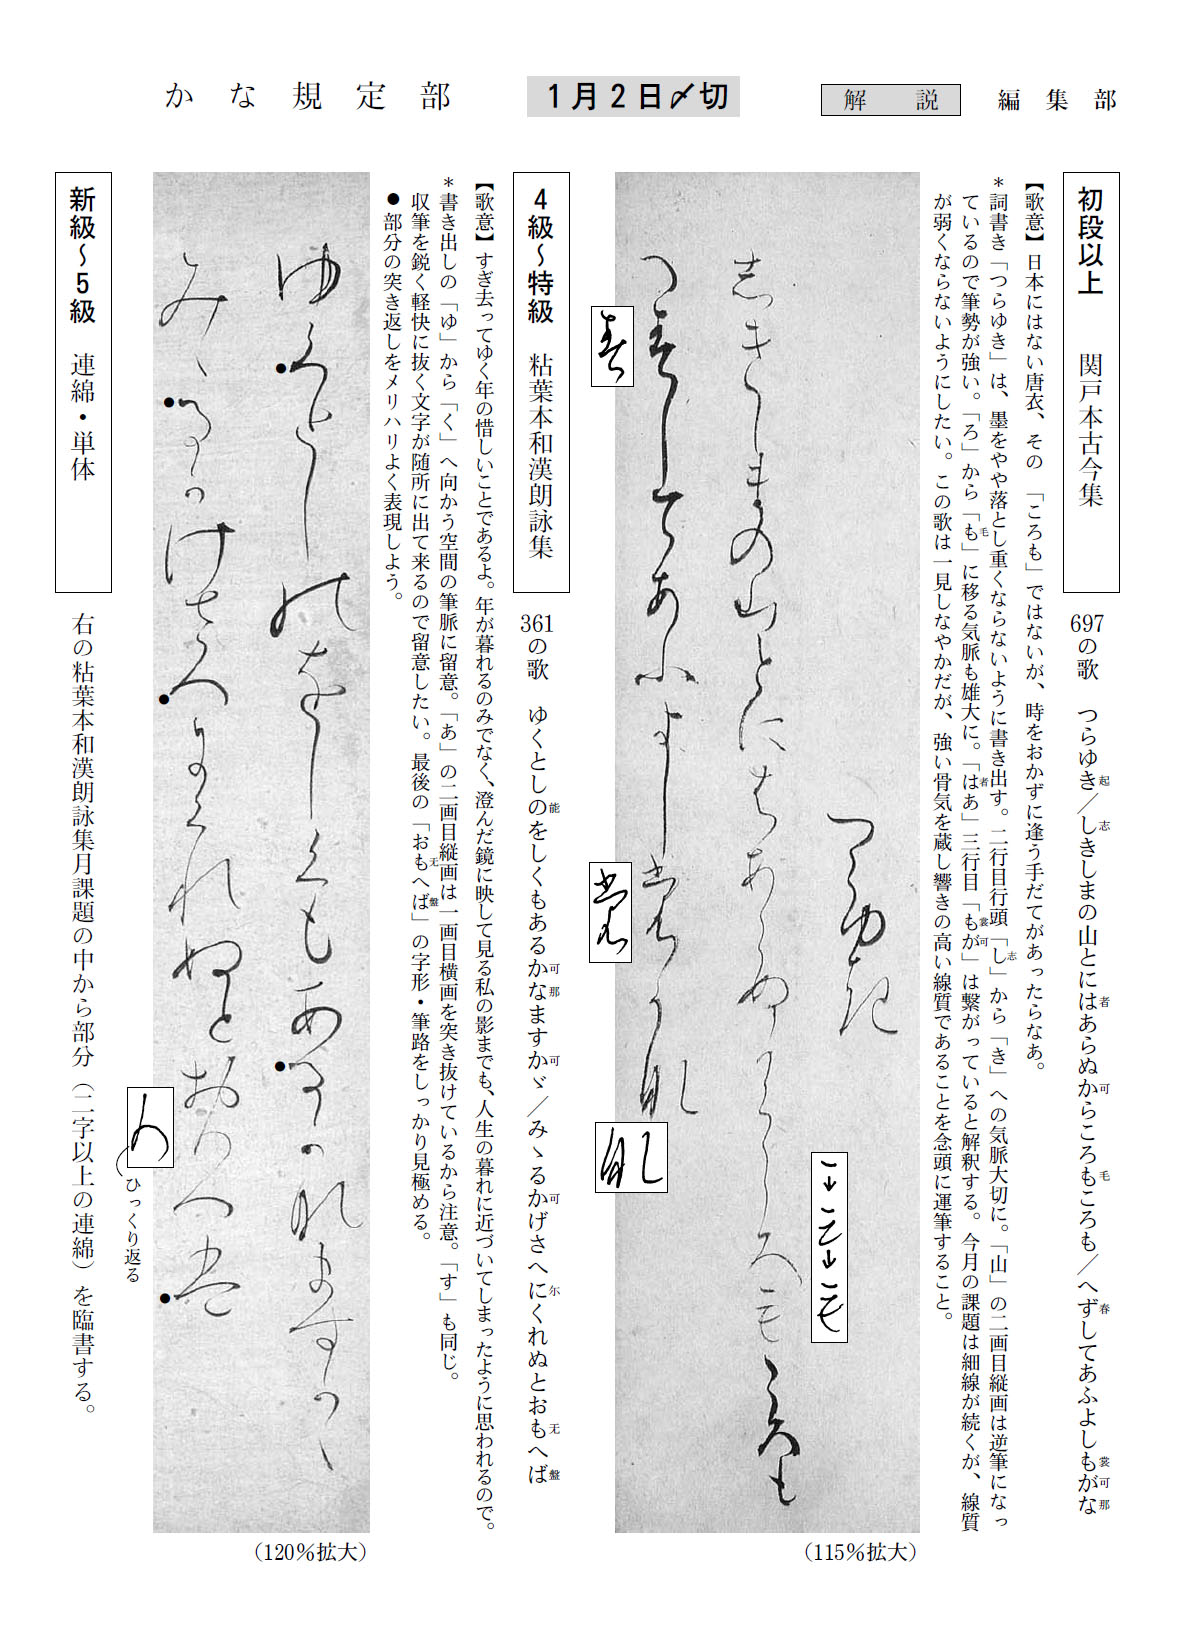 かな規定部
1月2日〆切
解説
編集部
初段以上 関戸本古今集
697の歌 つらゆき起／し志きしまの山とには者あらぬか可らころも毛ころも／へず春してあふよしも裳が可な那
【歌意】日本にはない唐衣、その「ころも」ではないが、時をおかずに逢う手だてがあったらなあ。
＊詞書き「つらゆき」は、墨をやや落とし重くならないように書き出す。二行目行頭「し志」から「き」への気脈大切に。「山」の二画目縦画は逆筆になっ
ているので筆勢が強い。「ろ」から「も毛」に移る気脈も雄大に。「は者あ」三行目「も裳が可」は繋がっていると解釈する。今月の課題は細線が続くが、線質
が弱くならないようにしたい。この歌は一見しなやかだが、強い骨気を蔵し響きの高い線質であることを念頭に運筆すること。
つらゆき
志きしまの山とには
あらぬからころ毛ころも
へ春してあふよし裳可那
（115％拡大）
4級〜特級 粘葉本和漢朗詠集
361の歌 ゆくとしの能をしくもあるか可な那ますか可ゞ／みゝるか可げさへに尓くれぬとおも无へば盤
【歌意】すぎ去ってゆく年の惜しいことであるよ。年が暮れるのみでなく、澄んだ鏡に映して見る私の影までも、人生の暮れに近づいてしまったように思われるので。
＊書き出しの「ゆ」から「く」へ向かう空間の筆脈に留意。「あ」の二画目縦画は一画目横画を突き抜けているから注意。「す」も同じ。
収筆を鋭く軽快に抜く文字が随所に出て来るので留意したい。最後の「おも无へば盤」の字形・筆路をしっかり見極める。
●部分の突き返しをメリハリよく表現しよう。
ゆくとし能をしくもある可那ますかゝ
みゝる可けさへ尓くれぬとお无へ盤
ひっくり返る
（120％拡大）
新級〜5級 連綿・単体
右の粘葉本和漢朗詠集月課題の中から部分（二字以上の連綿）を臨書する。